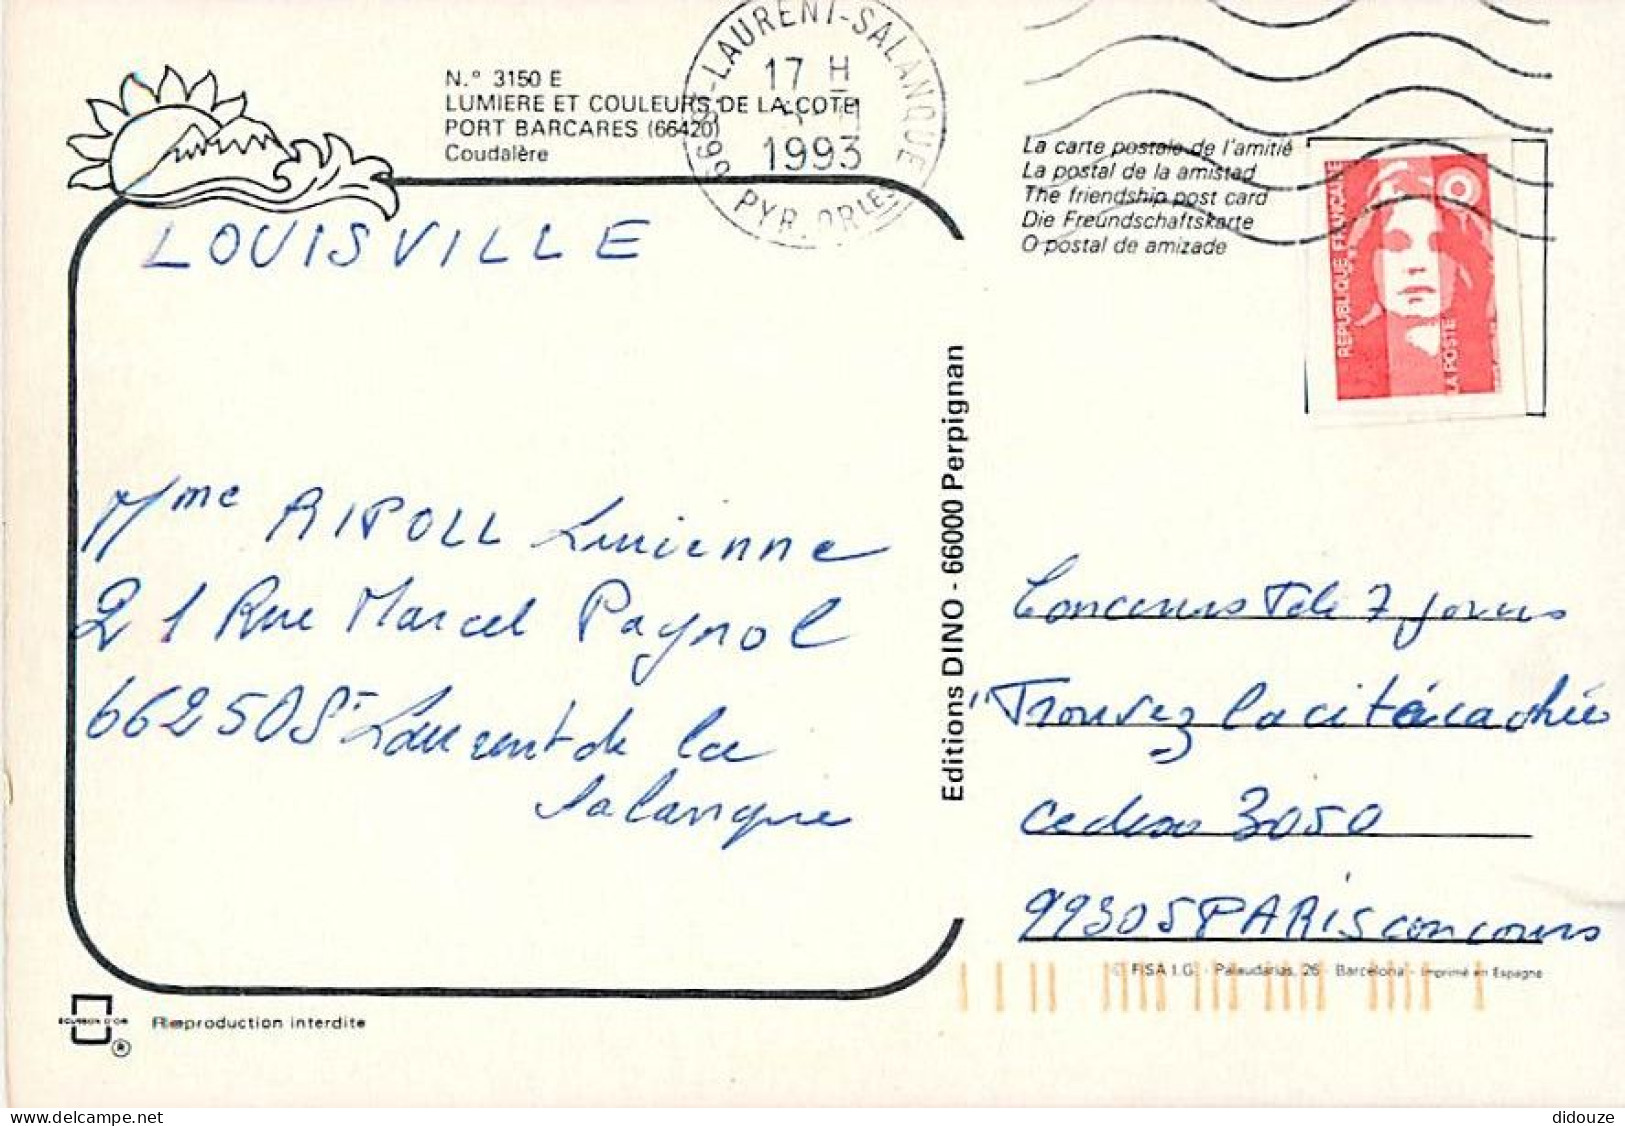 N.° 3150 E
LUMIERE ET COULEURS DE LA COTE
PORT BARCARES (66420)
Coudalère
ST-LAURENT-SALANQUE
17 H
1993
PYR. ORLES
La carte postale de l'amitié
La postal de la amistad
The friendship post card
Die Freundschaftskarte
O postal de amizade
REPUBLIQUE FRANÇAISE
LA POSTE
LOUISVILLE
Mme RIPOLL Lucienne
21 Rue Marcel Pagnol
66250 St Laurent de la
Salanque
Editions DINO - 66000 Perpignan
Concours Tele 7 jours
"Trouvez la cité cachée
cedex 3050
99305 PARIS concours
© FISA I.G. - Palaudarias, 26 - Barcelona - Imprimé en Espagne
ECUSSON D'OR
®
Reproduction interdite
didouze